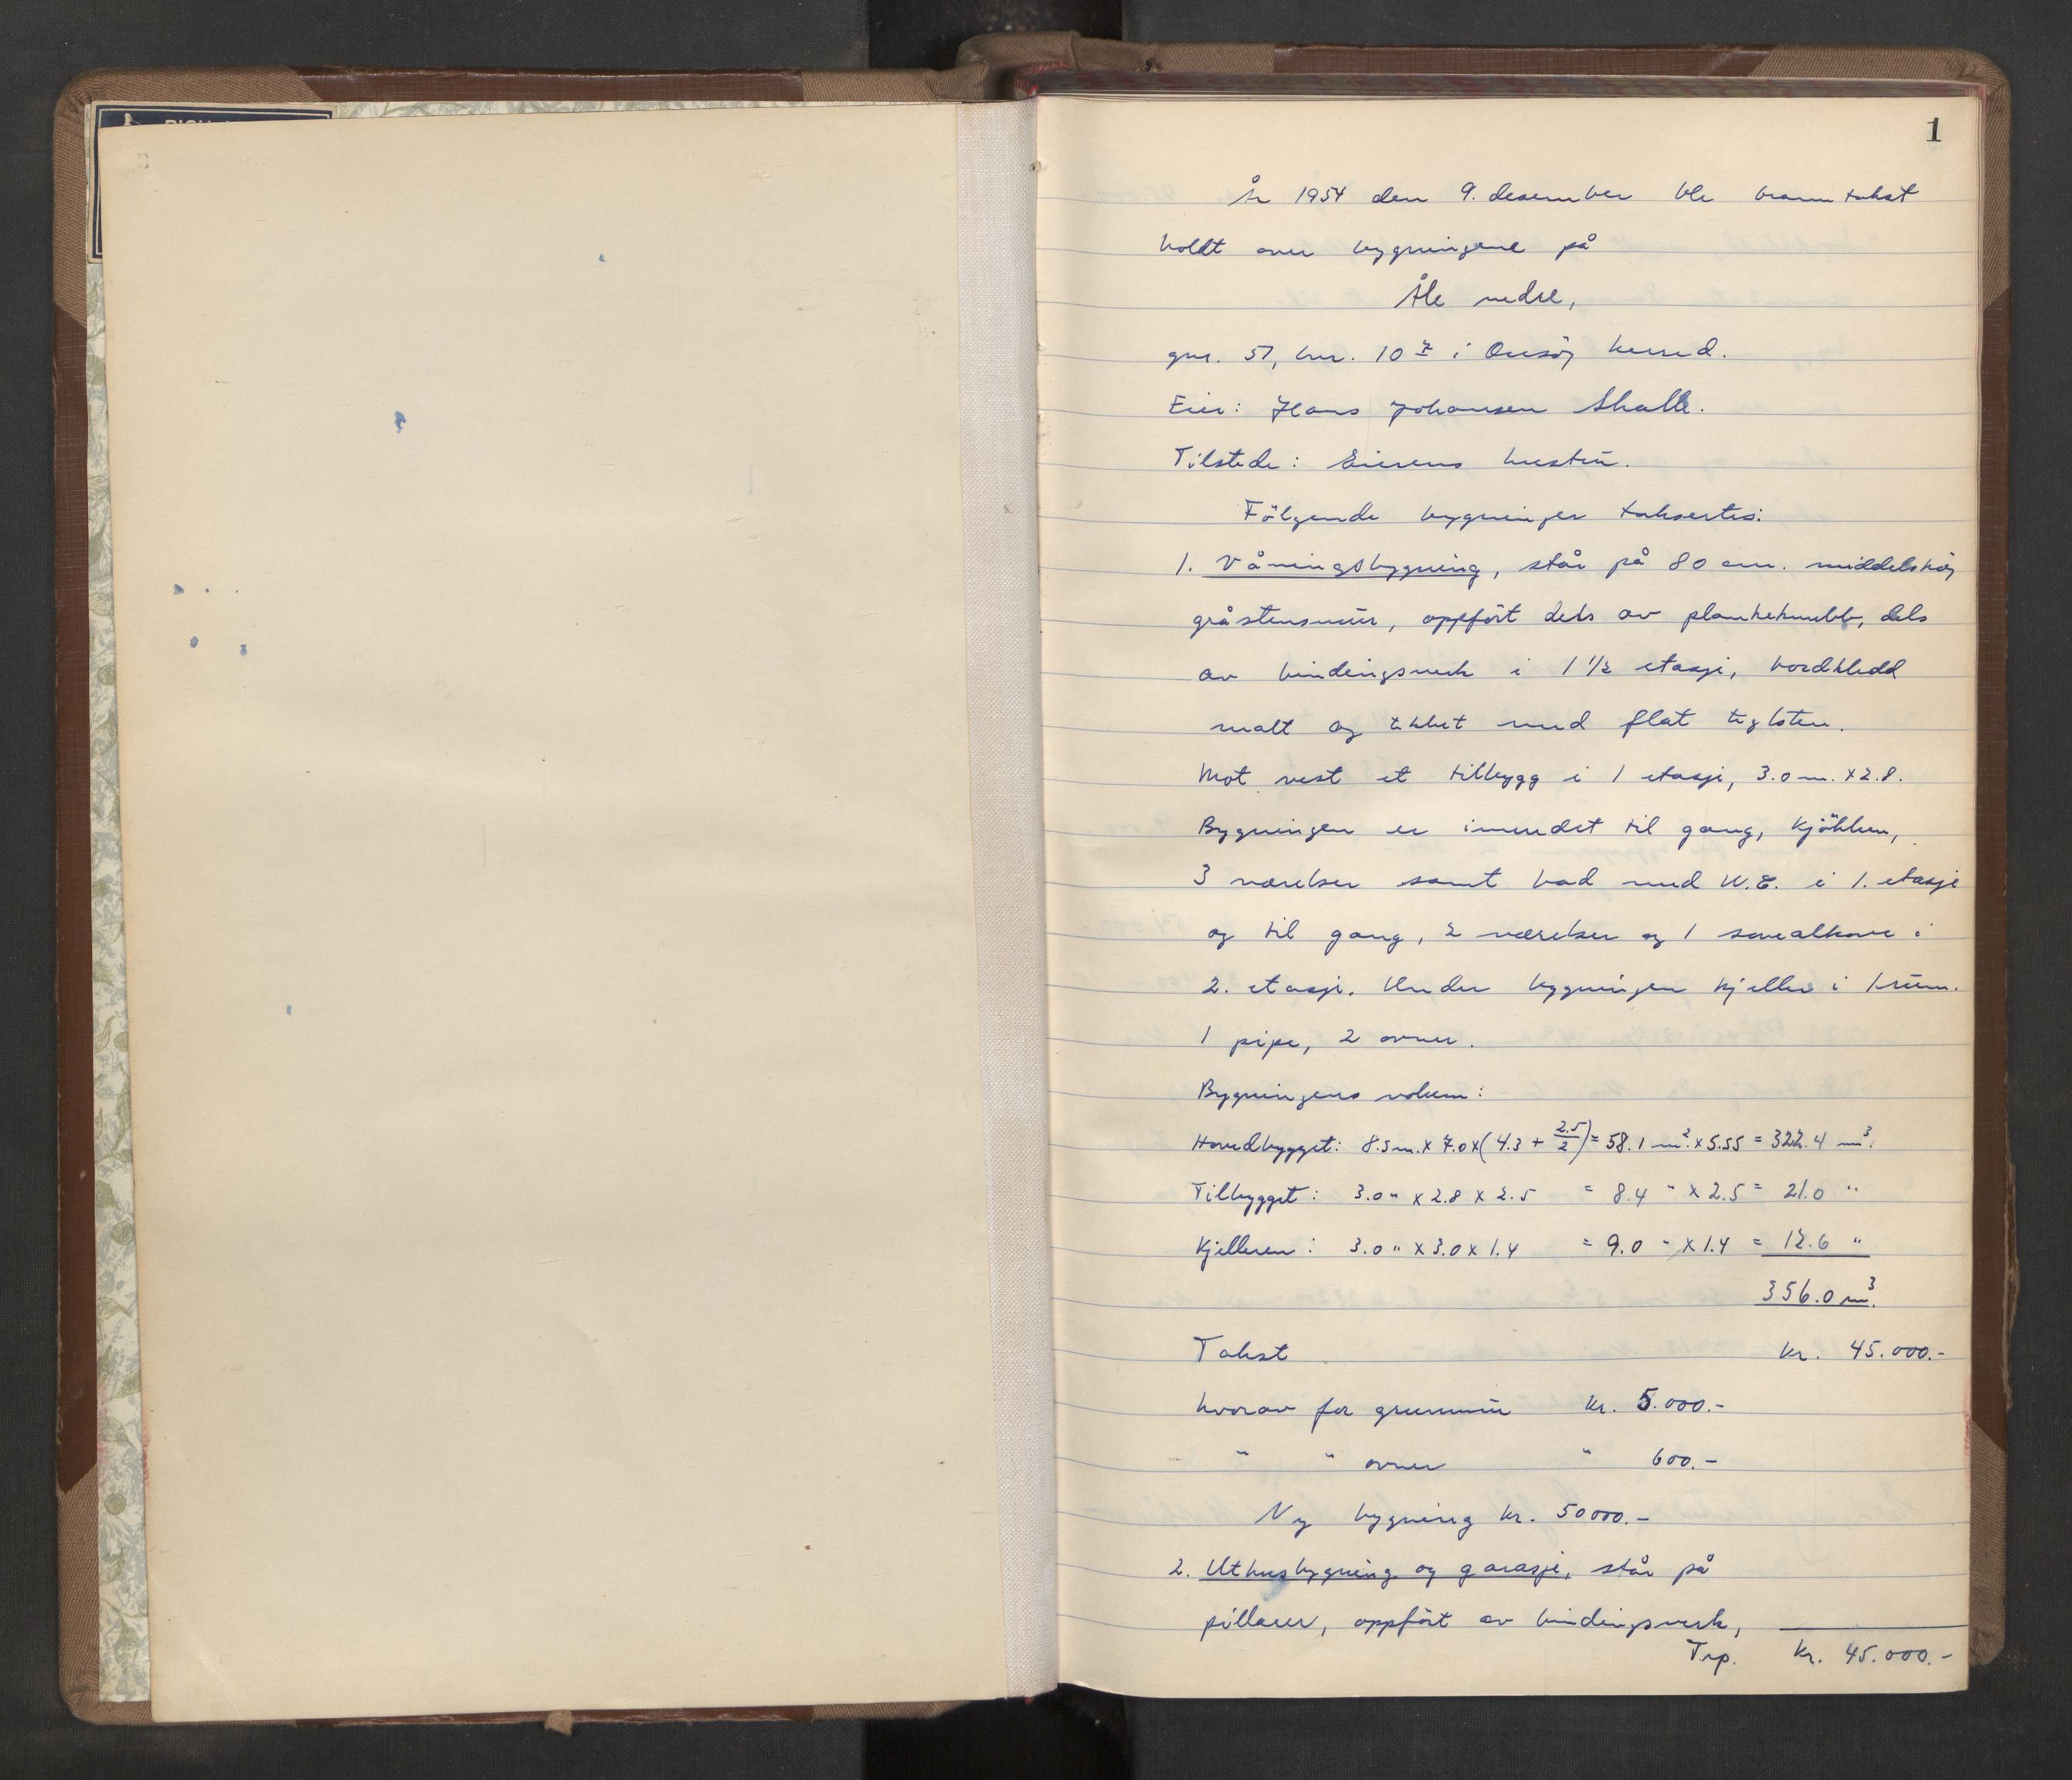 1
År 1954 den 9. desember ble branntakst
holdt over bygningene på
Åle nedre,
gnr. 57, bnr. 10 i Onsøy herred.
Eier: Hans Johansen Skalle.
Tilstede: Eierens hustrū.
Følgende bygninger taksertes:
1. Våningsbygning, står på 80 cm. middelshøy
gråstensmūr, oppført dels av plankekubb, dels
av bindingsverk i 1 1/2 etasje, bordkledd
malt og tekket med flat teglsten.
Mot vest et tilbygg i 1 etasje, 3.0 m. x 2.8.
Bygningen er innredet til gang, kjøkken,
3 værelser samt bad med W.C. i 1. etasje
og til gang, 2 værelser og 1 sovealkove i
2. etasje. Under bygningen kjeller i 1 rūm.
1 pipe, 2 ovner.
Bygningens volum:
Hovedbygget: 8.3 m. x 7.0 x (4.3 + 2.5/2) = 58.1 m². x 5.55 = 322.4 m³.
Tilbygget: 3.0 " x 2.8 x 2.5 = 8.4 " x 2.5 = 21.0 "
Kjelleren: 3.0 " x 3.0 x 1.4 = 9.0 " x 1.4 = 12.6 "
356.0 m³.
Takst kr. 45.000.-
hvorav for grunnmūr kr. 5.000.-
" " ovner " 600.-
Ny bygning kr. 50000.-
2. Uthusbygning og garasje, står på
pillarer, oppført av bindingsverk,
Trp. kr. 45.000.-